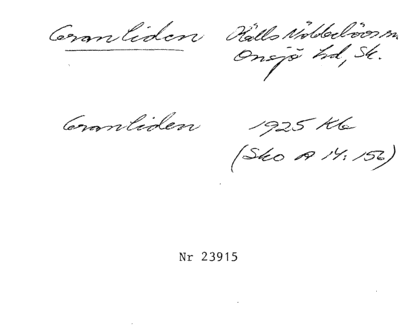 Granliden Hälls Nöbbelövs sn
Onsjö hd, Sk.
Granliden 1925 Kb
(Sko A 14: 156)
Nr 23915